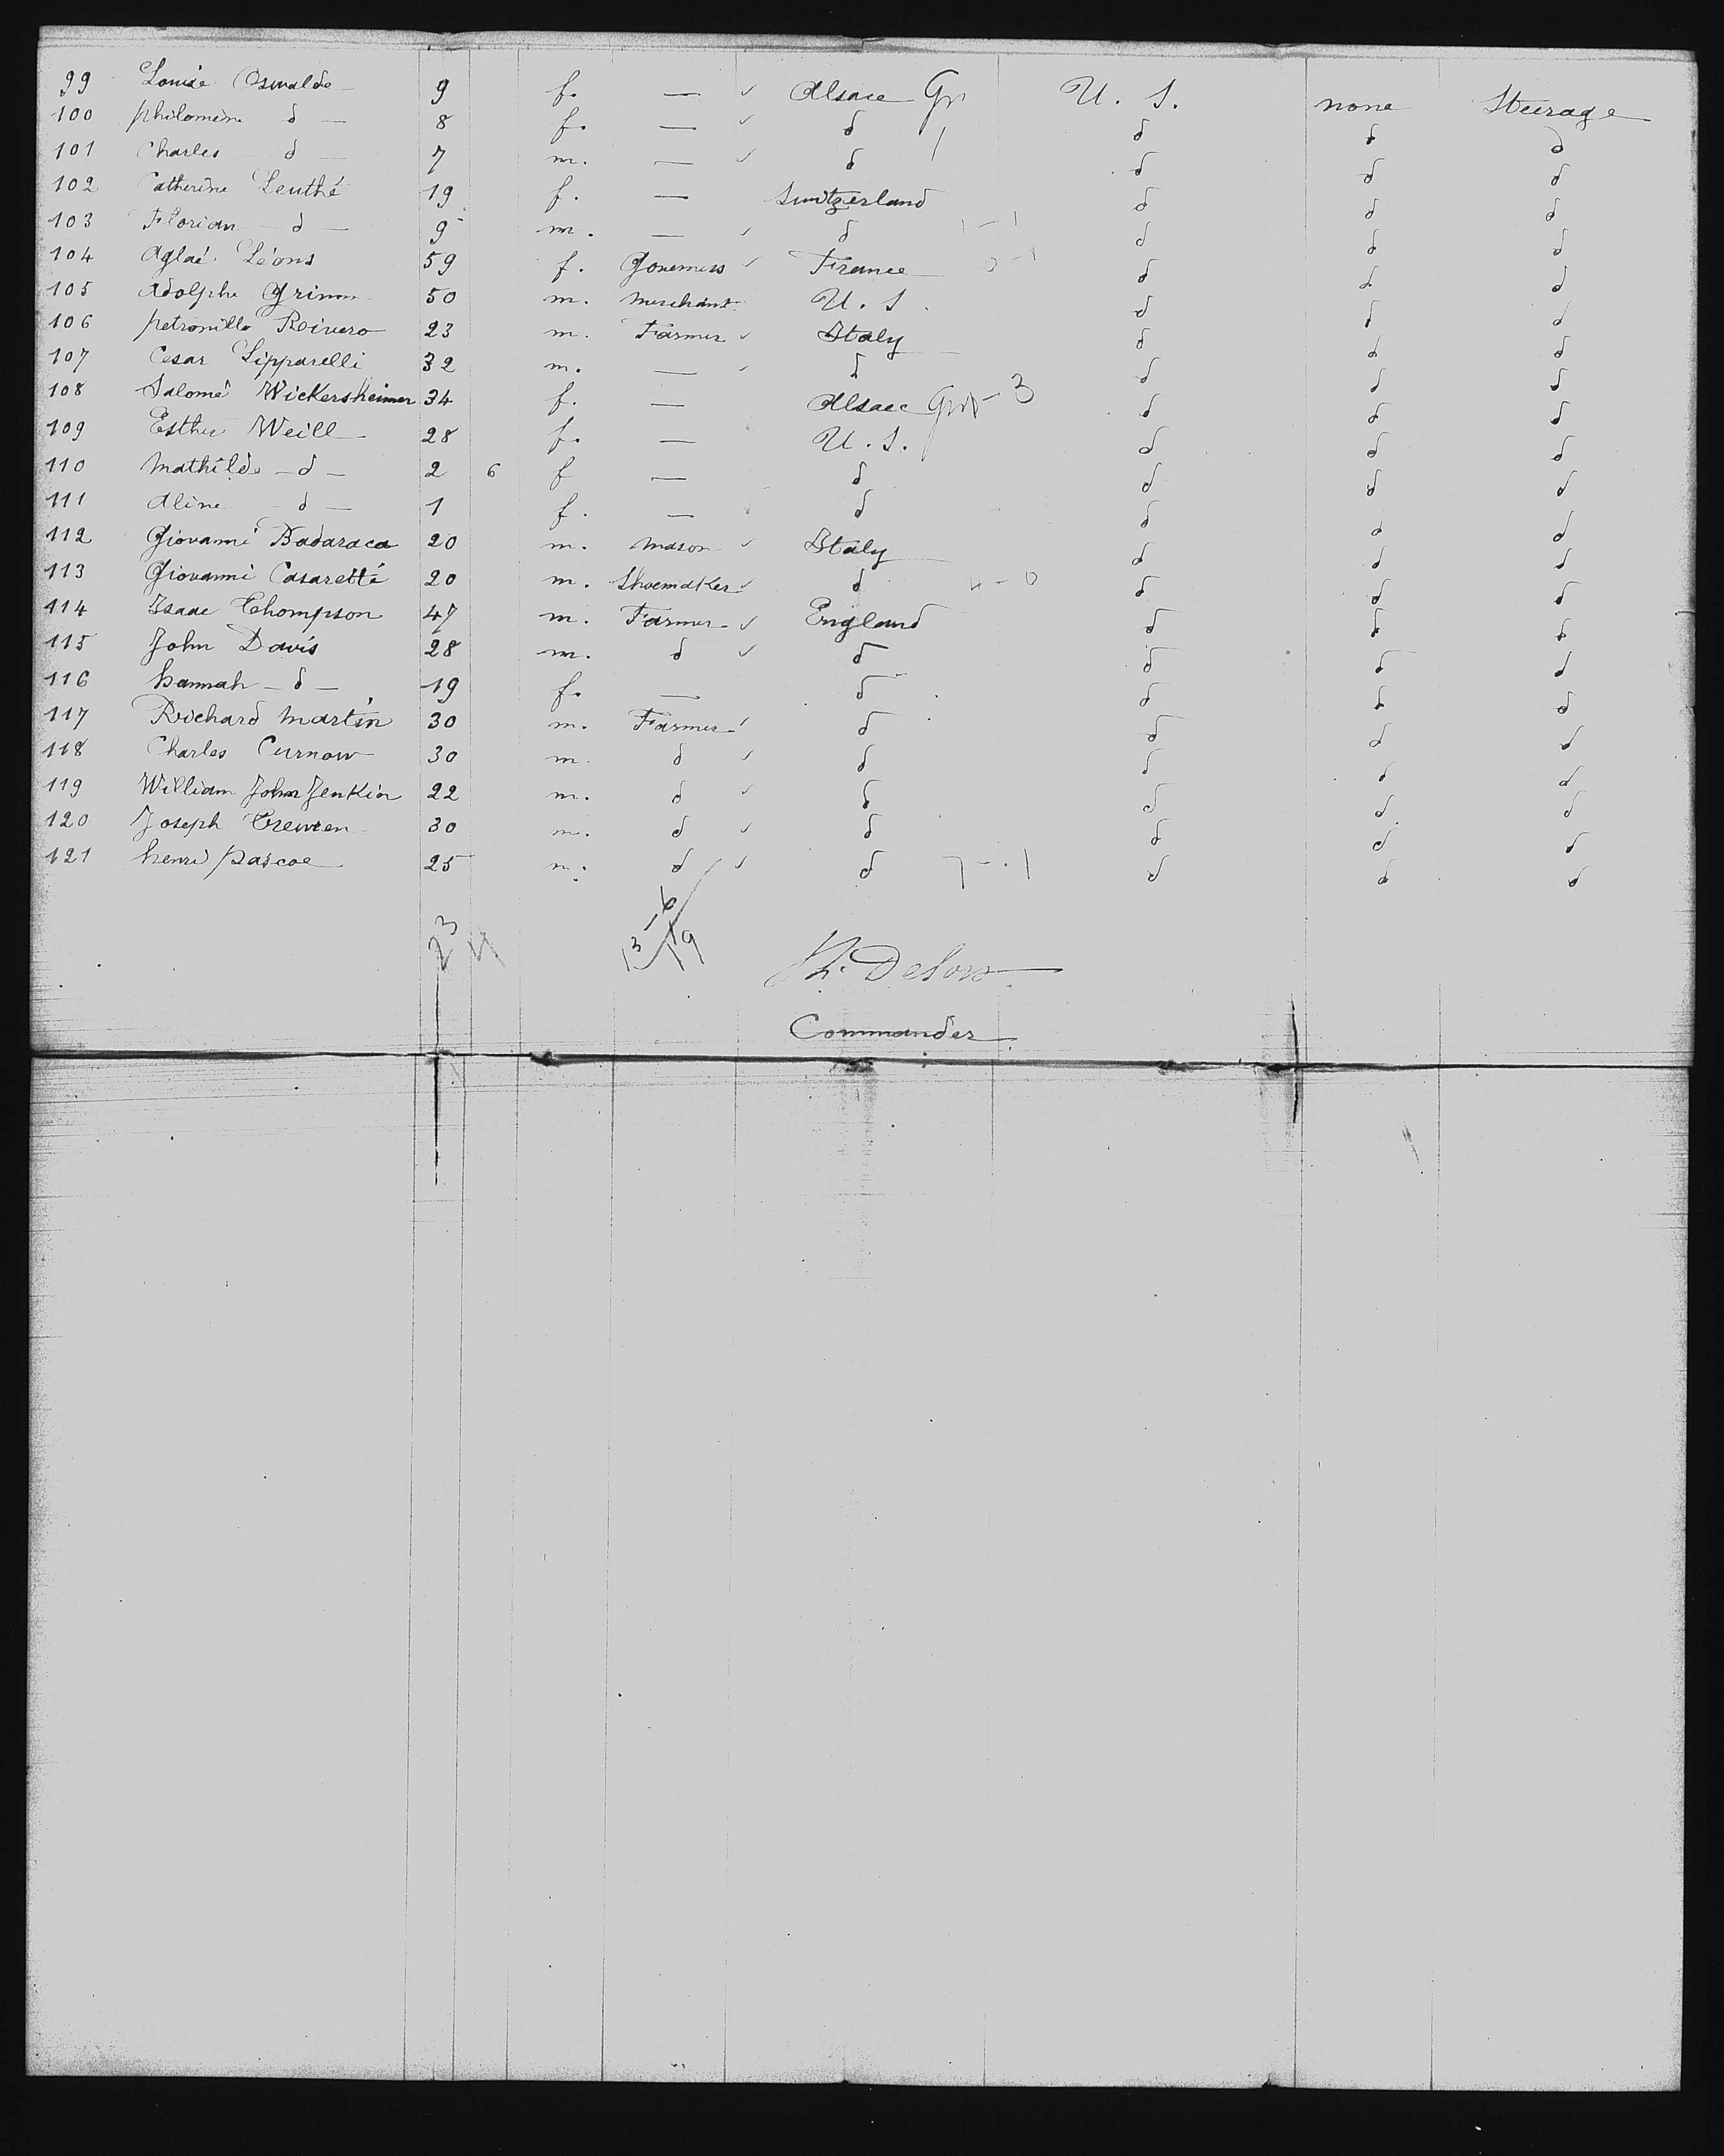 99 Louise Oswalde 9 f. — ✓ Alsace Gr U. S. none Steerage
100 philomène d — 8 f. — ✓ d d d d
101 Charles d — 7 m. — ✓ d d d d
102 Catherine Leuthé 19 f. — Switzerland d d d
103 Florian d — 9 m. — ✓ d 1-1 d d d
104 Aglaé Léons 59 f. Governess ✓ France d d d
105 Adolphe Grimm 50 m. Merchant U. S. d d d
106 petronillo Roivero 23 m. Farmer ✓ Italy d d d
107 Cesar Lipparelli 32 m. — ✓ d d d d
108 Salomé Wickersheimer 34 f. — Alsace Gr - 3 d d d
109 Esther Weill 28 f. — U. S. d d d
110 Mathilde — d — 2 6 f — d d d d
111 Aline d — 1 f. — d d d d
112 Giovanni Badaraca 20 m. Mason ✓ Italy d d d
113 Giovanni Casaretté 20 m. Shoemaker ✓ d 4-0 d d d
114 Isaac Thompson 47 m. Farmer ✓ England d d d
115 John Davis 28 m. d ✓ d d d d
116 hannah — d — 19 f. — d d d d
117 Richard Martin 30 m. Farmer ✓ d d d d
118 Charles Curnow 30 m. d ✓ d d d d
119 William John Jenkin 22 m. d ✓ d d d d
120 Joseph Trewren 30 m. d ✓ d d d d
121 henri pascoe 25 m. d ✓ d 7-1 d d d
23
13 - 6
19
Delors
Commander